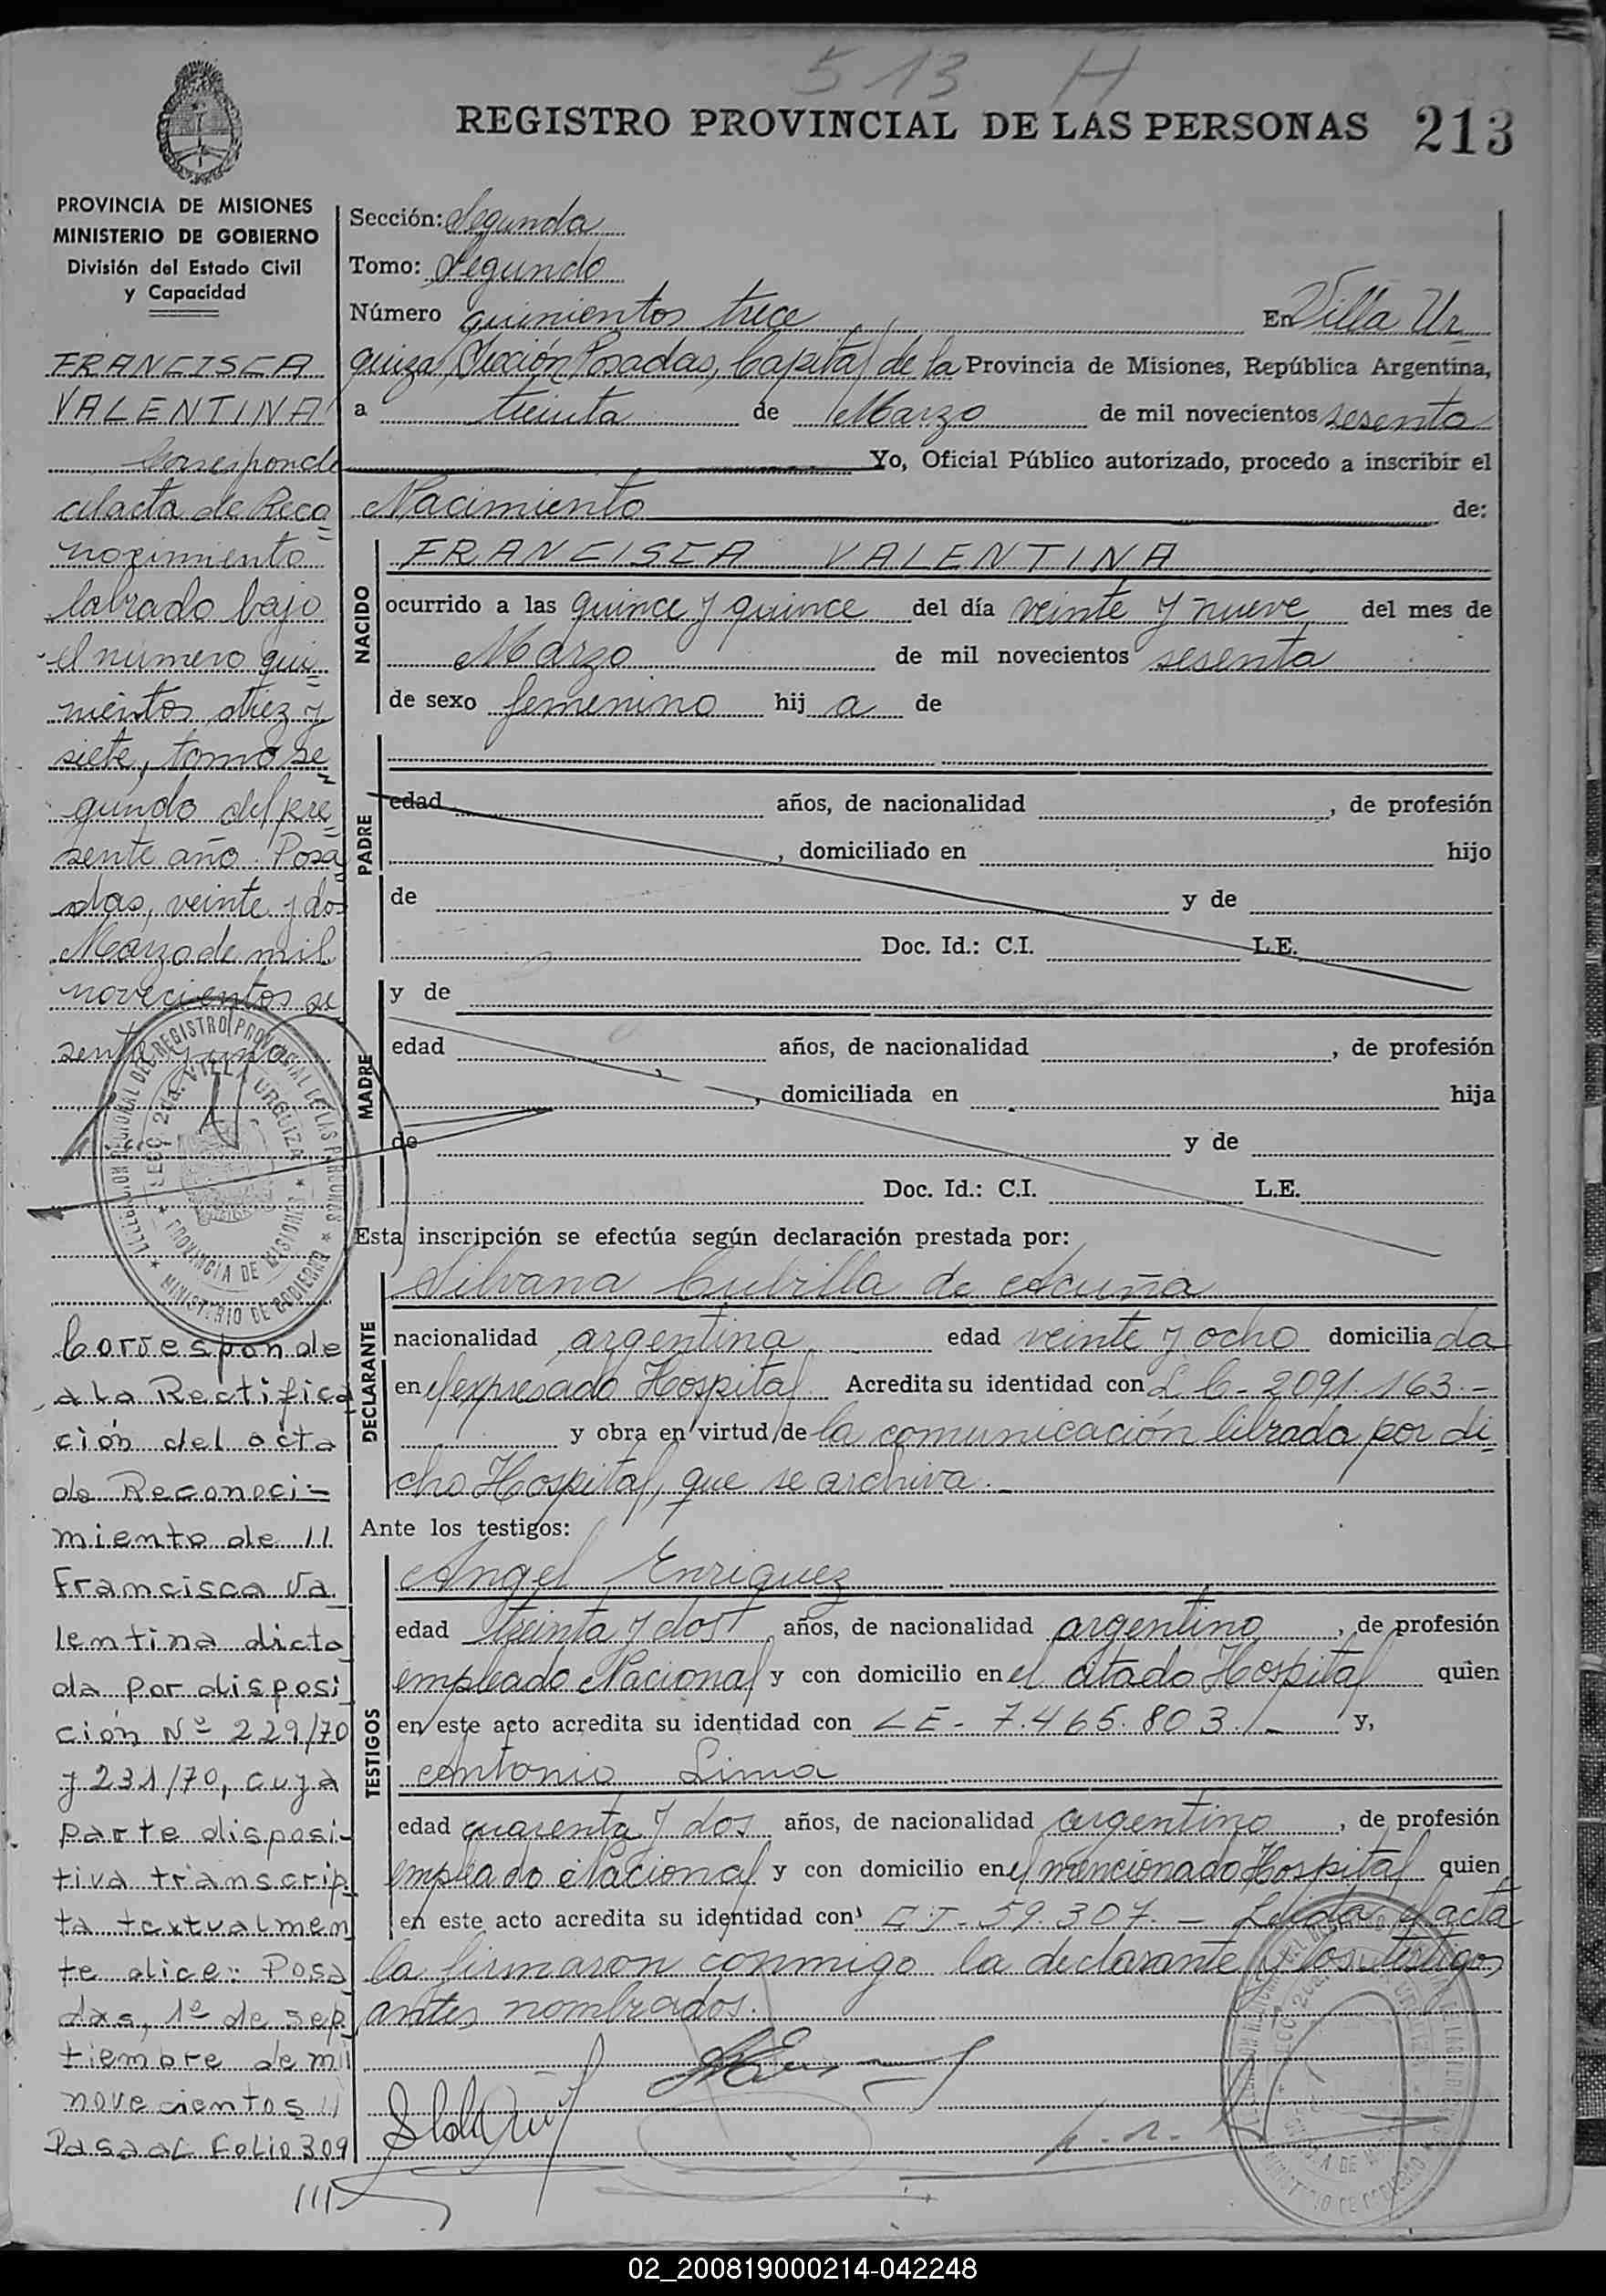 513 H
REGISTRO PROVINCIAL DE LAS PERSONAS 213
PROVINCIA DE MISIONES
MINISTERIO DE GOBIERNO
División del Estado Civil
y Capacidad
FRANCISCA
VALENTINA
Corresponde
al acta de Reco
nocimiento
labrado bajo
el número qui
nientos diez y
siete, tomo se
gundo del pre
sente año. Posa
das, veinte y dos
Marzo de mil
novecientos se
senta y uno
DELEGACION REGIONAL DEL REGISTRO PROVINCIAL DE LAS PERSONAS
SECC. 2da. VILLA URQUIZA
PROVINCIA DE MISIONES
MINISTERIO DE GOBIERNO
Corresponde
a la Rectifica
ción del acta
de Reconoci-
miento de //
Francisca Va
lentina dicta
da por disposi
ción Nº 229/70
y 231/70, cuya
parte disposi-
tiva transcrip
ta textualmen
te dice: Posa
das, 1º de sep
tiembre de mil
novecientos //
Pasa al Folio 309
///
Sección: Segunda
Tomo: Segundo
Número quinientos trece En Villa Ur
quiza Sección Posadas, Capital de la Provincia de Misiones, República Argentina,
a treinta de Marzo de mil novecientos sesenta
Yo, Oficial Público autorizado, procedo a inscribir el
Nacimiento de:
NACIDO
FRANCISCA VALENTINA
ocurrido a las quince y quince del día veinte y nueve del mes de
Marzo de mil novecientos sesenta
de sexo femenino hij a de
PADRE
edad años, de nacionalidad , de profesión
, domiciliado en hijo
de y de
Doc. Id.: C.I. L.E.
MADRE
y de
edad años, de nacionalidad , de profesión
, domiciliada en hija
de y de
Doc. Id.: C.I. L.E.
Esta inscripción se efectúa según declaración prestada por:
DECLARANTE
Silvana Cubilla de Acuña
nacionalidad argentina edad veinte y ocho domicilia da
en el expresado Hospital Acredita su identidad con L C - 2091.163.-
y obra en virtud de la comunicación librada por di
cho Hospital, que se archiva.-
Ante los testigos:
TESTIGOS
Angel Enriquez
edad treinta y dos años, de nacionalidad argentino, de profesión
empleado Nacional y con domicilio en el citado Hospital quien
en este acto acredita su identidad con LE - 7.465.803.- y,
Antonio Lima
edad cuarenta y dos años, de nacionalidad argentino, de profesión
empleado Nacional y con domicilio en el mencionado Hospital quien
en este acto acredita su identidad con C.I - 59.307.- Leída el acta
la firmaron conmigo la declarante y los testigos
antes nombrados.
02_200819000214-042248